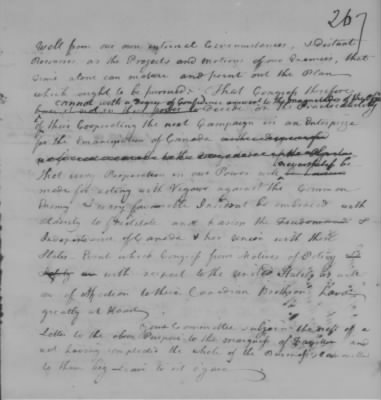 267
Well from our own internal Circumstances, & distant
Resources, as the Projects and motions of our Enemies, that
time alone can mature and point out the Plan
which ought to be pursued. That Congress therefore
cannot with a degree of Confidence answer to the
decide on the Practicability
of their Cooperating the next Campaign in an Enterprize
for the Emancipation of Canada
That every Preparation in our Power will be
made for acting with Vigour against the Common
Enemy & every favorable Incident be embraced with
Alacrity to facilitate and hasten the Freedom &
Independence of Canada & her union with these
States. Event which Congress from Motives of Policy
with respect to the United States as well
as of Affection to their Canadian Brethren have
greatly at Heart.
Your Committee subjoin the draft of a
Letter to the above Purpose to the marquis de Fayette and
not having compleated the whole of the Business committed
to them beg leave to sit again